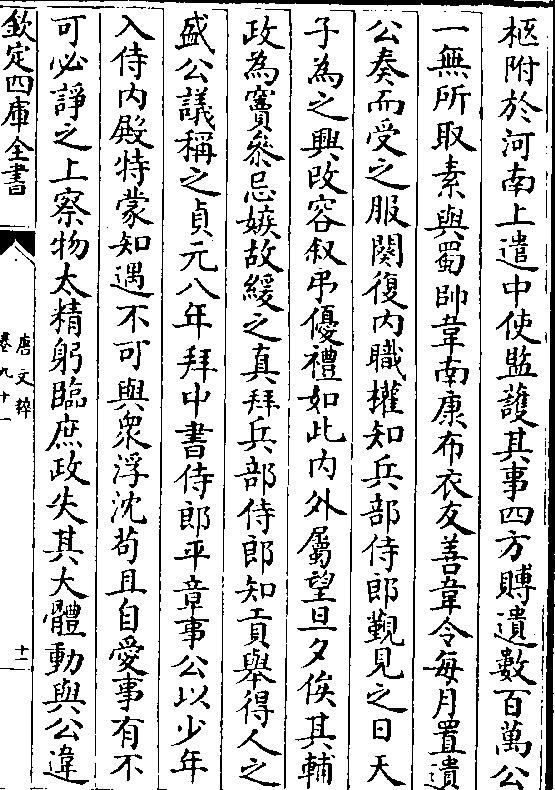 柩附於河南上遣中使監護其事四方賻遺數百萬公
一無所取素與蜀帥韋南康布衣友善韋令每月置遺
公奏而受之服闋復内職權知兵部侍郎覲見之日天
子為之興改容叙弔優禮如此内外屬望旦夕俟其輔
政為竇叅忌嫉故緩之真拜兵部侍郎知貢舉得人之
盛公議稱之貞元八年拜中書侍郎平章事公以少年
入侍内殿特蒙知遇不可與衆浮沈苟且自愛事有不
可必諍之上察物太精躬臨庶政失其大體動與公違
欽定四庫全書
唐文粹
卷九十一
十二